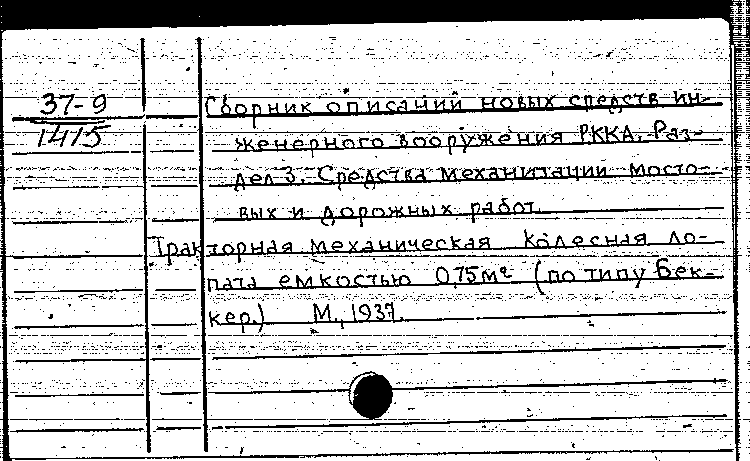 37-9
1415
Сборник описаний новых средств ин-
женерного вооружения РККА. Раз-
дел 3. Средства механизации мосто-
вых и дорожных работ.
Тракторная механическая колесная ло-
пата емкостью 0,75м² (по типу Бек-
кер.) М., 1937.